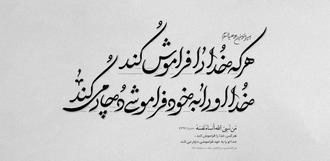 هرکه خدا را فراموش کند
خدا او را به خود فراموشی دچار می‌کند
مَن نَسِیَ اللهَ أنساهُ نَفسَهُ
هر کس خدا را فراموش کند ،
خدا او را به خود فراموشی دچار می کند